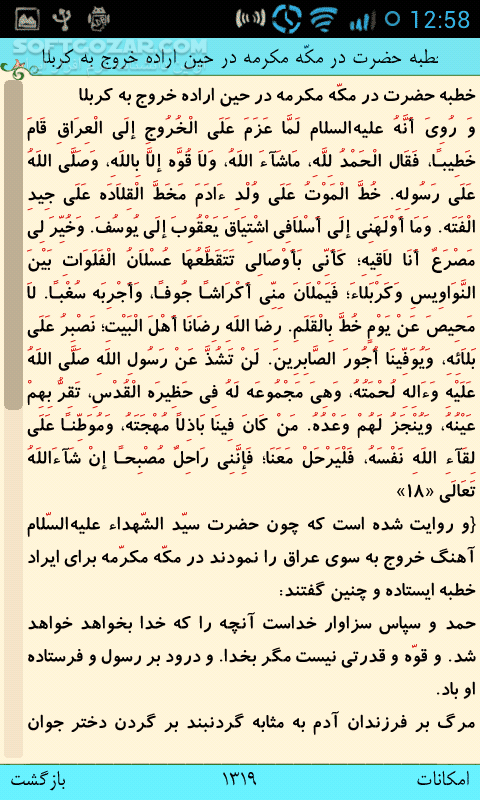 12:58
SOFTCOZAR.COM
خطبه حضرت در مکّه مکرمه در حین اراده خروج به کربلا
خطبه حضرت در مکّه مکرمه در حین اراده خروج به کربلا
وَ رُوِیَ أَنَّهُ علیه‌السلام لَمَّا عَزَمَ عَلَی الْخُرُوجِ إلَی الْعِرَاقِ قَامَ
خَطِیبًـا، فَقَال الْحَمْدُ لِلَّهِ، مَاشَآءَ اللَهُ، وَلَا قُوَّه إلاَّ بِاللَهِ، وَصَلَّی اللَهُ
عَلَی رَسُولِهِ. خُطَّ الْمَوْتُ عَلَی وُلْدِ ءَادَمَ مَخَطَّ الْقِلَادَه عَلَی جِیدِ
الْفَتَه. وَمَا أَوْلَهَنِی إلَی أَسْلَافِی اشْتِیَاقَ یَعْقُوبَ إلَی یُوسُفَ. وَخُیِّرَ لِی
مَصْرَعٌ أَنَا لاَقِیهِ؛ کَأَنِّی بَأَوْصَالِی تَتَقَطَّعُهَا عُسْلاَنُ الْفَلَوَاتِ بَیْنَ
النَّوَاوِیسِ وَکَرْبَلَاءَ؛ فَیَمْلَانَ مِنِّی أَکْرَاشًـا جُوفًـا، وَأَجْرِبَه سُغْبًـا. لاَ
مَحِیصَ عَنْ یَوْمٍ خُطَّ بِالْقَلَمِ. رِضَا اللَهِ رِضَانَا أَهْلَ الْبَیْتِ؛ نَصْبِرُ عَلَی
بَلَائِهِ، وَیُوَفِّینَا أُجُورَ الصَّابِرِینَ. لَنْ تَشُذَّ عَنْ رَسُولِ اللَهِ صَلَّی اللَهُ
عَلَیْهِ وَءَالِهِ لُحْمَتُهُ، وَهِیَ مَجْمُوعَه لَهُ فِی حَظِیرَه الْقُدْسِ، تَقَرُّ بِهِمْ
عَیْنُهُ، وَیُنْجَزُ لَهُمْ وَعْدُهُ. مَنْ کَانَ فِینَا بَاذِلاً مُهْجَتَهُ، وَمُوَطِّنًـا عَلَی
لِقَآءِ اللَهِ نَفْسَهُ، فَلْیَرْحَلْ مَعَنَا؛ فَإنَّنِی رَاحِلٌ مُصْبِحًـا إنْ شَآءَاللَهُ
تَعَالَی «۱۸»
{و روایت شده است که چون حضرت سیّد الشّهداء علیه‌السّلام
آهنگ خروج به سوی عراق را نمودند در مکّه مکرّمه برای ایراد
خطبه ایستاده و چنین گفتند:
حمد و سپاس سزاوار خداست آنچه را که خدا بخواهد خواهد
شد. و قوّه و قدرتی نیست مگر بخدا. و درود بر رسول و فرستاده
او باد.
مرگ بر فرزندان آدم به مثابه گردنبند بر گردن دختر جوان
امکانات
۱۳۱۹
بازگشت